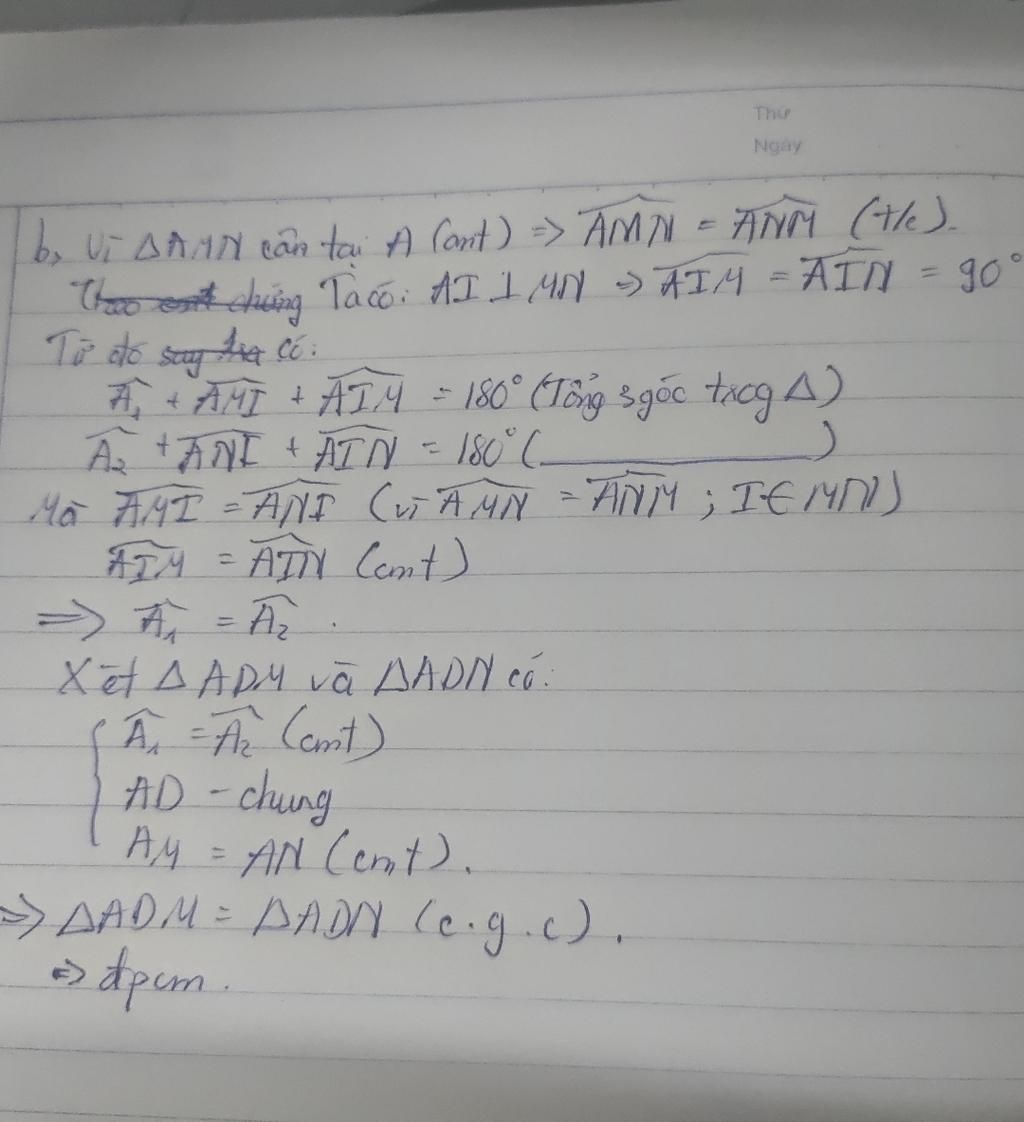 Thứ
Ngày
b, Vì ΔAMN cân tại A (cmt) => \widehat{AMN} = \widehat{ANM} (t/c).
Theo cmt chứng Ta có: AI ⊥ MN => \widehat{AIM} = \widehat{AIN} = 90°
Từ đó suy tra có:
\widehat{A₁} + \widehat{AMI} + \widehat{AIM} = 180° (Tổng 3 góc trog Δ)
\widehat{A₂} + \widehat{ANI} + \widehat{AIN} = 180° (__________)
Mà \widehat{AMI} = \widehat{ANI} (vì \widehat{AMN} = \widehat{ANM} ; I ∈ MN)
\widehat{AIM} = \widehat{AIN} (cmt)
=> \widehat{A₁} = \widehat{A₂} .
Xét ΔADM và ΔADN có:
{ \widehat{A₁} = \widehat{A₂} (cmt)
AD - chung
AM = AN (cmt).
=> ΔADM = ΔADN (c.g.c).
=> đpcm.